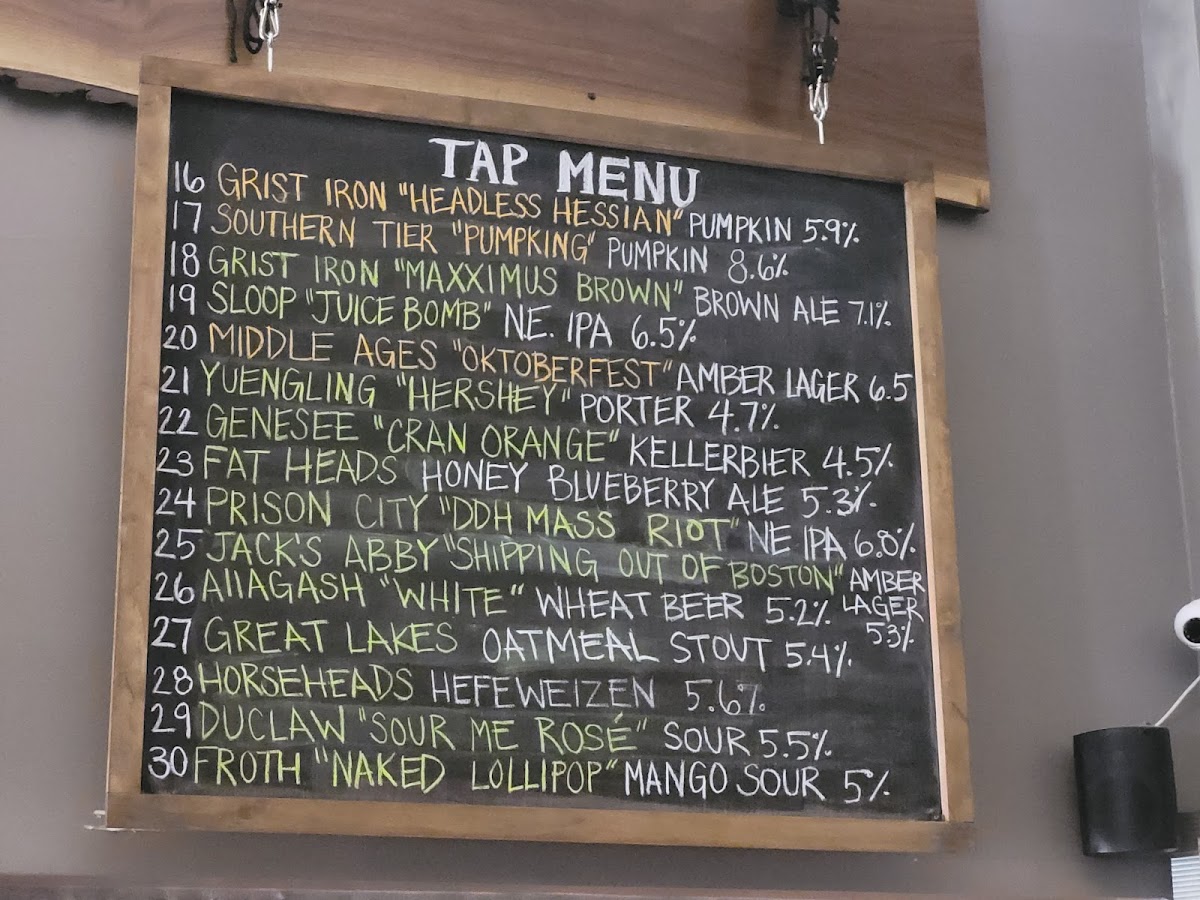 TAP MENU
16 GRIST IRON "HEADLESS HESSIAN" PUMPKIN 5.9%
17 SOUTHERN TIER "PUMPKING" PUMPKIN 8.6%
18 GRIST IRON "MAXXIMUS BROWN" BROWN ALE 7.1%
19 SLOOP "JUICE BOMB" N.E. IPA 6.5%
20 MIDDLE AGES "OKTOBERFEST" AMBER LAGER 6.5
21 YUENGLING "HERSHEY" PORTER 4.7%
22 GENESEE "CRAN ORANGE" KELLERBIER 4.5%
23 FAT HEADS HONEY BLUEBERRY ALE 5.3%
24 PRISON CITY "DDH MASS RIOT" NE IPA 6.8%
25 JACK'S ABBY "SHIPPING OUT OF BOSTON" AMBER
LAGER
5.3%
26 AllAGASH "WHITE" WHEAT BEER 5.2%
27 GREAT LAKES OATMEAL STOUT 5.4%
28 HORSEHEADS HEFEWEIZEN 5.6%
29 DUCLAW "SOUR ME ROSÉ" SOUR 5.5%
30 FROTH "NAKED LOLLIPOP" MANGO SOUR 5%